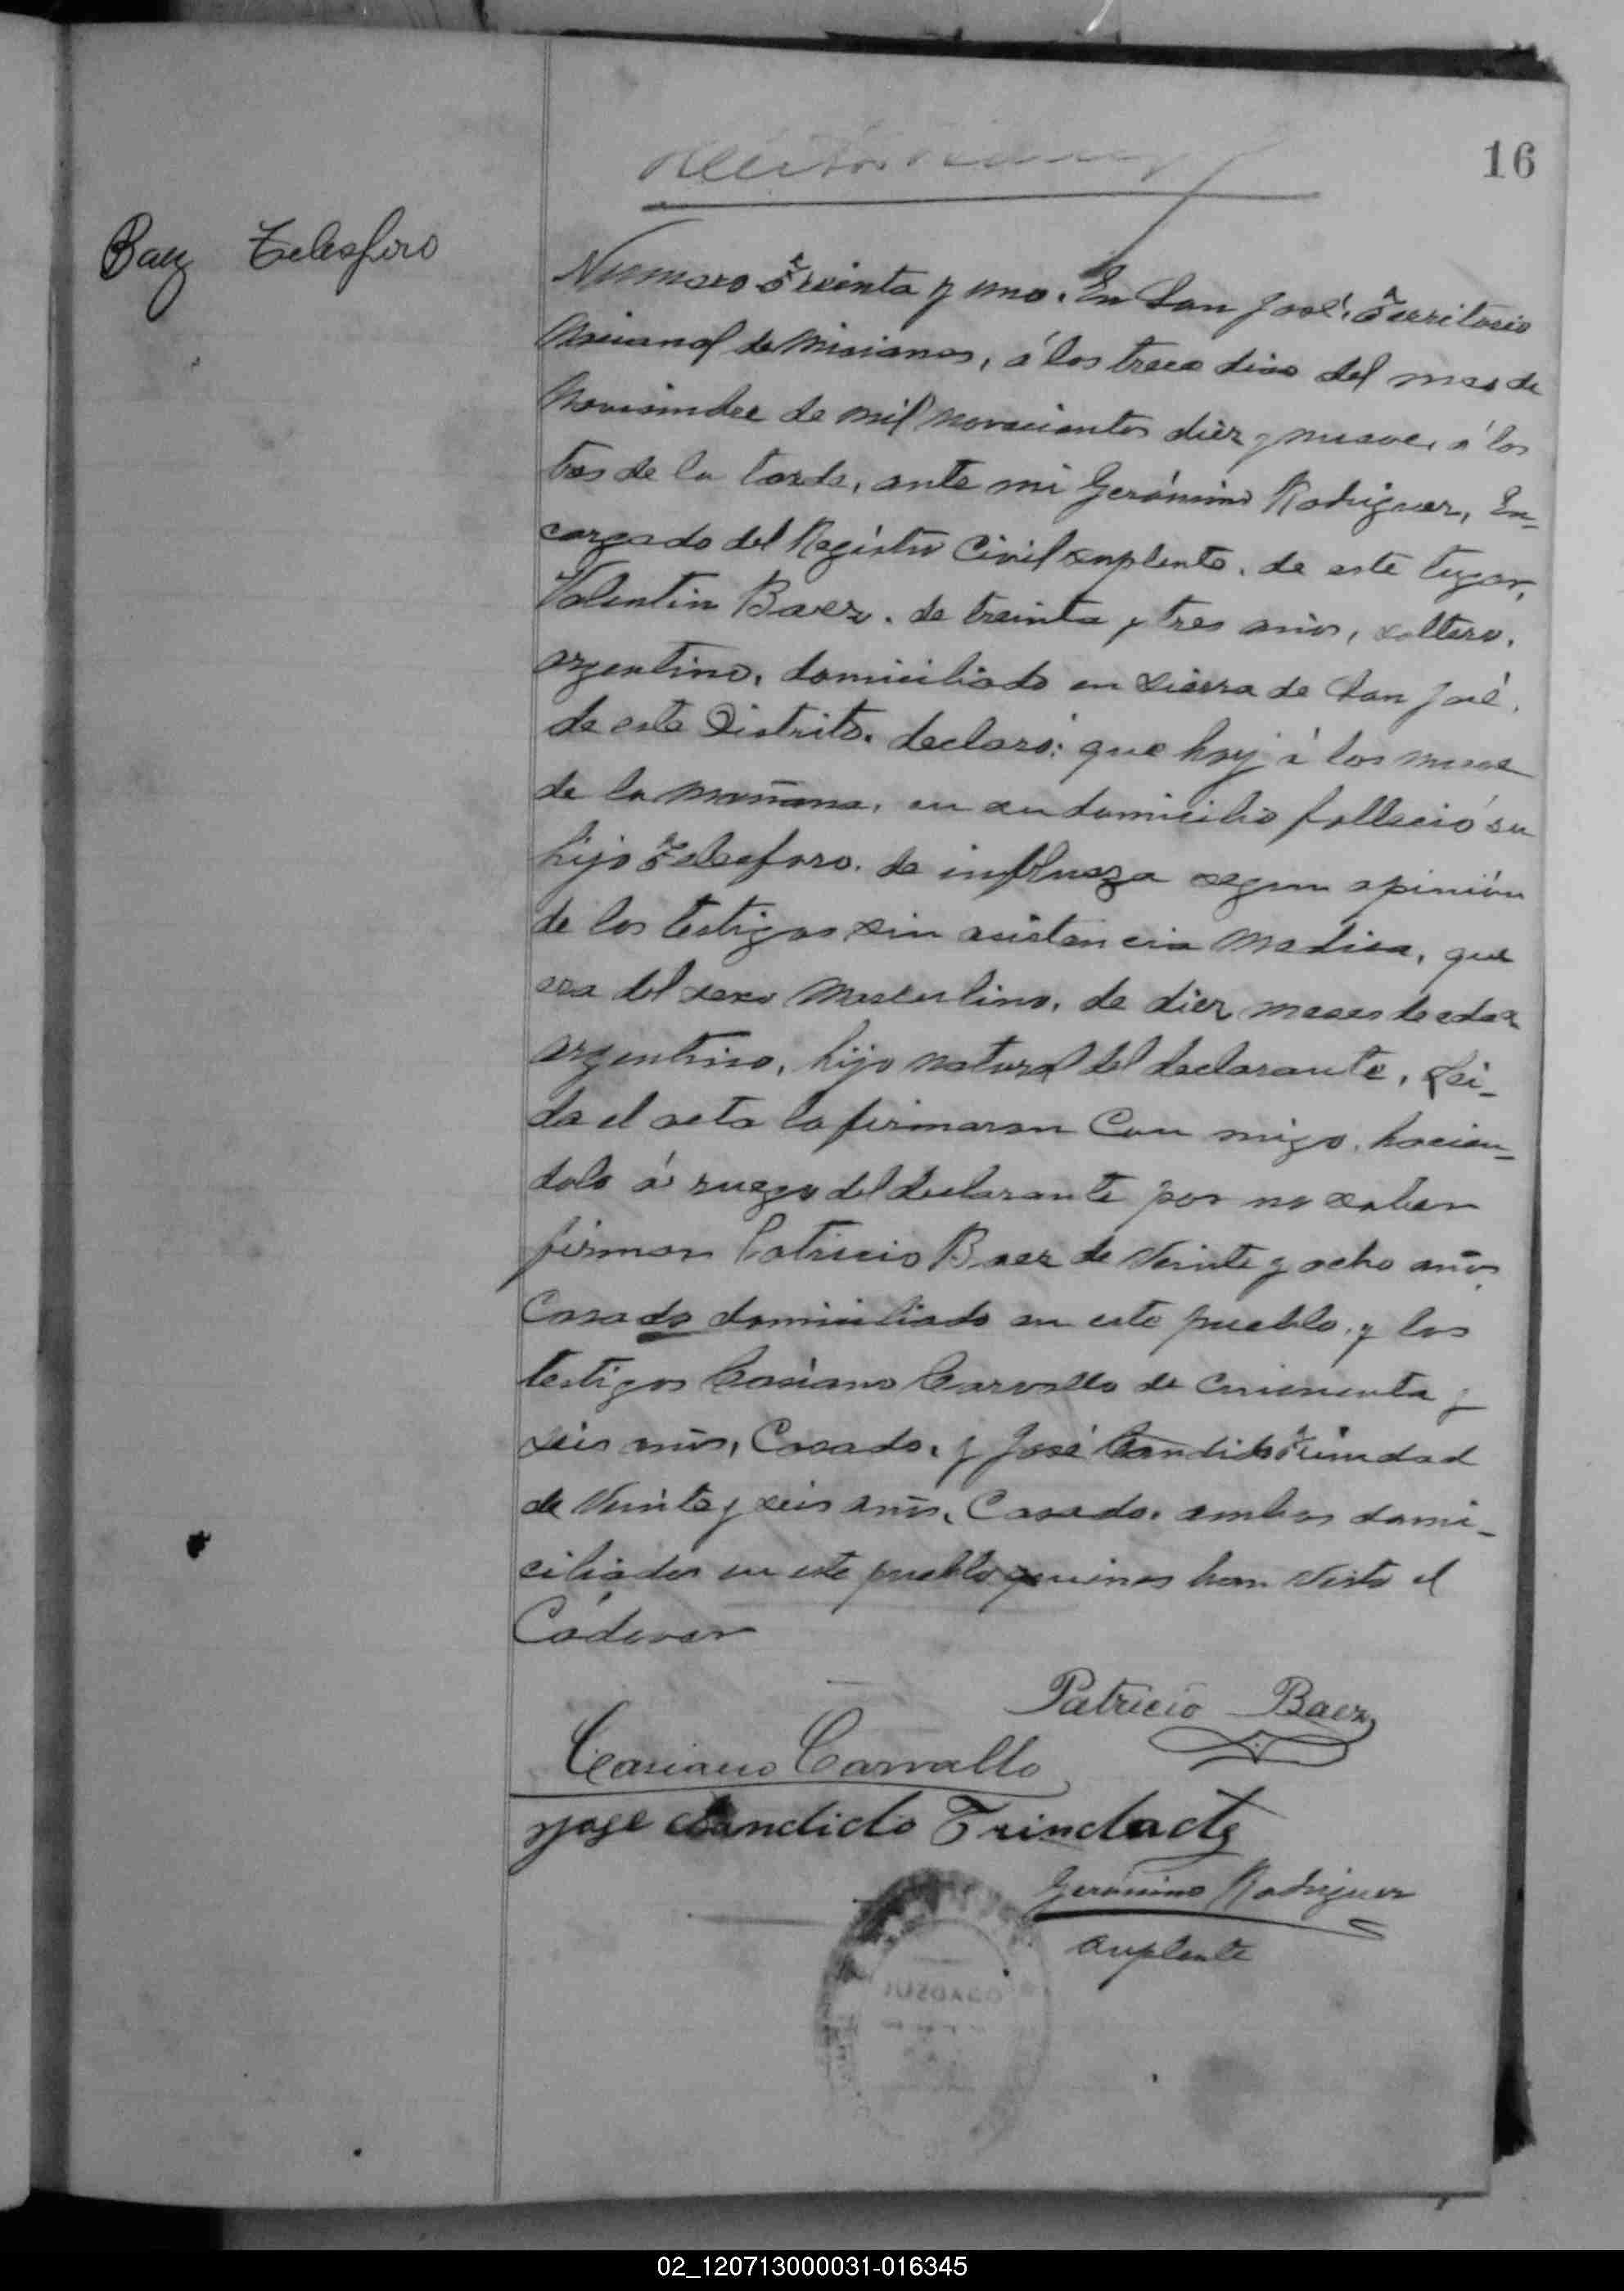 16
Baez Telesforo
Numero Treinta y uno. En San José, Territorio
Nacional de Misiones, á los trece dias del mes de
Noviembre de mil novecientos diez y nueve, á las
tres de la tarde, ante mi Gerónimo Rodriguez, En-
cargado del Registro Civil suplente, de este lugar,
Valentin Baez, de treinta y tres años, soltero,
argentino, domiciliado en Sierra de San José,
de este Distrito, declaró: que hoy á las nueve
de la mañana, en su domicilio falleció su
hijo Telesforo, de influenza segun opinión
de los testigos sin asistencia medica, que
era del sexo masculino, de diez meses de edad
argentino, hijo natural del declarante, Lei-
da el acta la firmaron con migo, hacien-
dolo á ruego del declarante por no saber
firmar Patricio Baez de veinte y ocho años
Casado domiciliado en este pueblo, y los
testigos Casiano Carvallo de cincuenta y
seis años, Casado, y José Candido Trindad
de veinte y seis años, Casado, ambos domi-
ciliados en este pueblo quienes han visto el
Cádaver
Patricio Baez
Casiano Carvallo
Jose Candido Trindade
Gerónimo Rodriguez
suplente
02_120713000031-016345